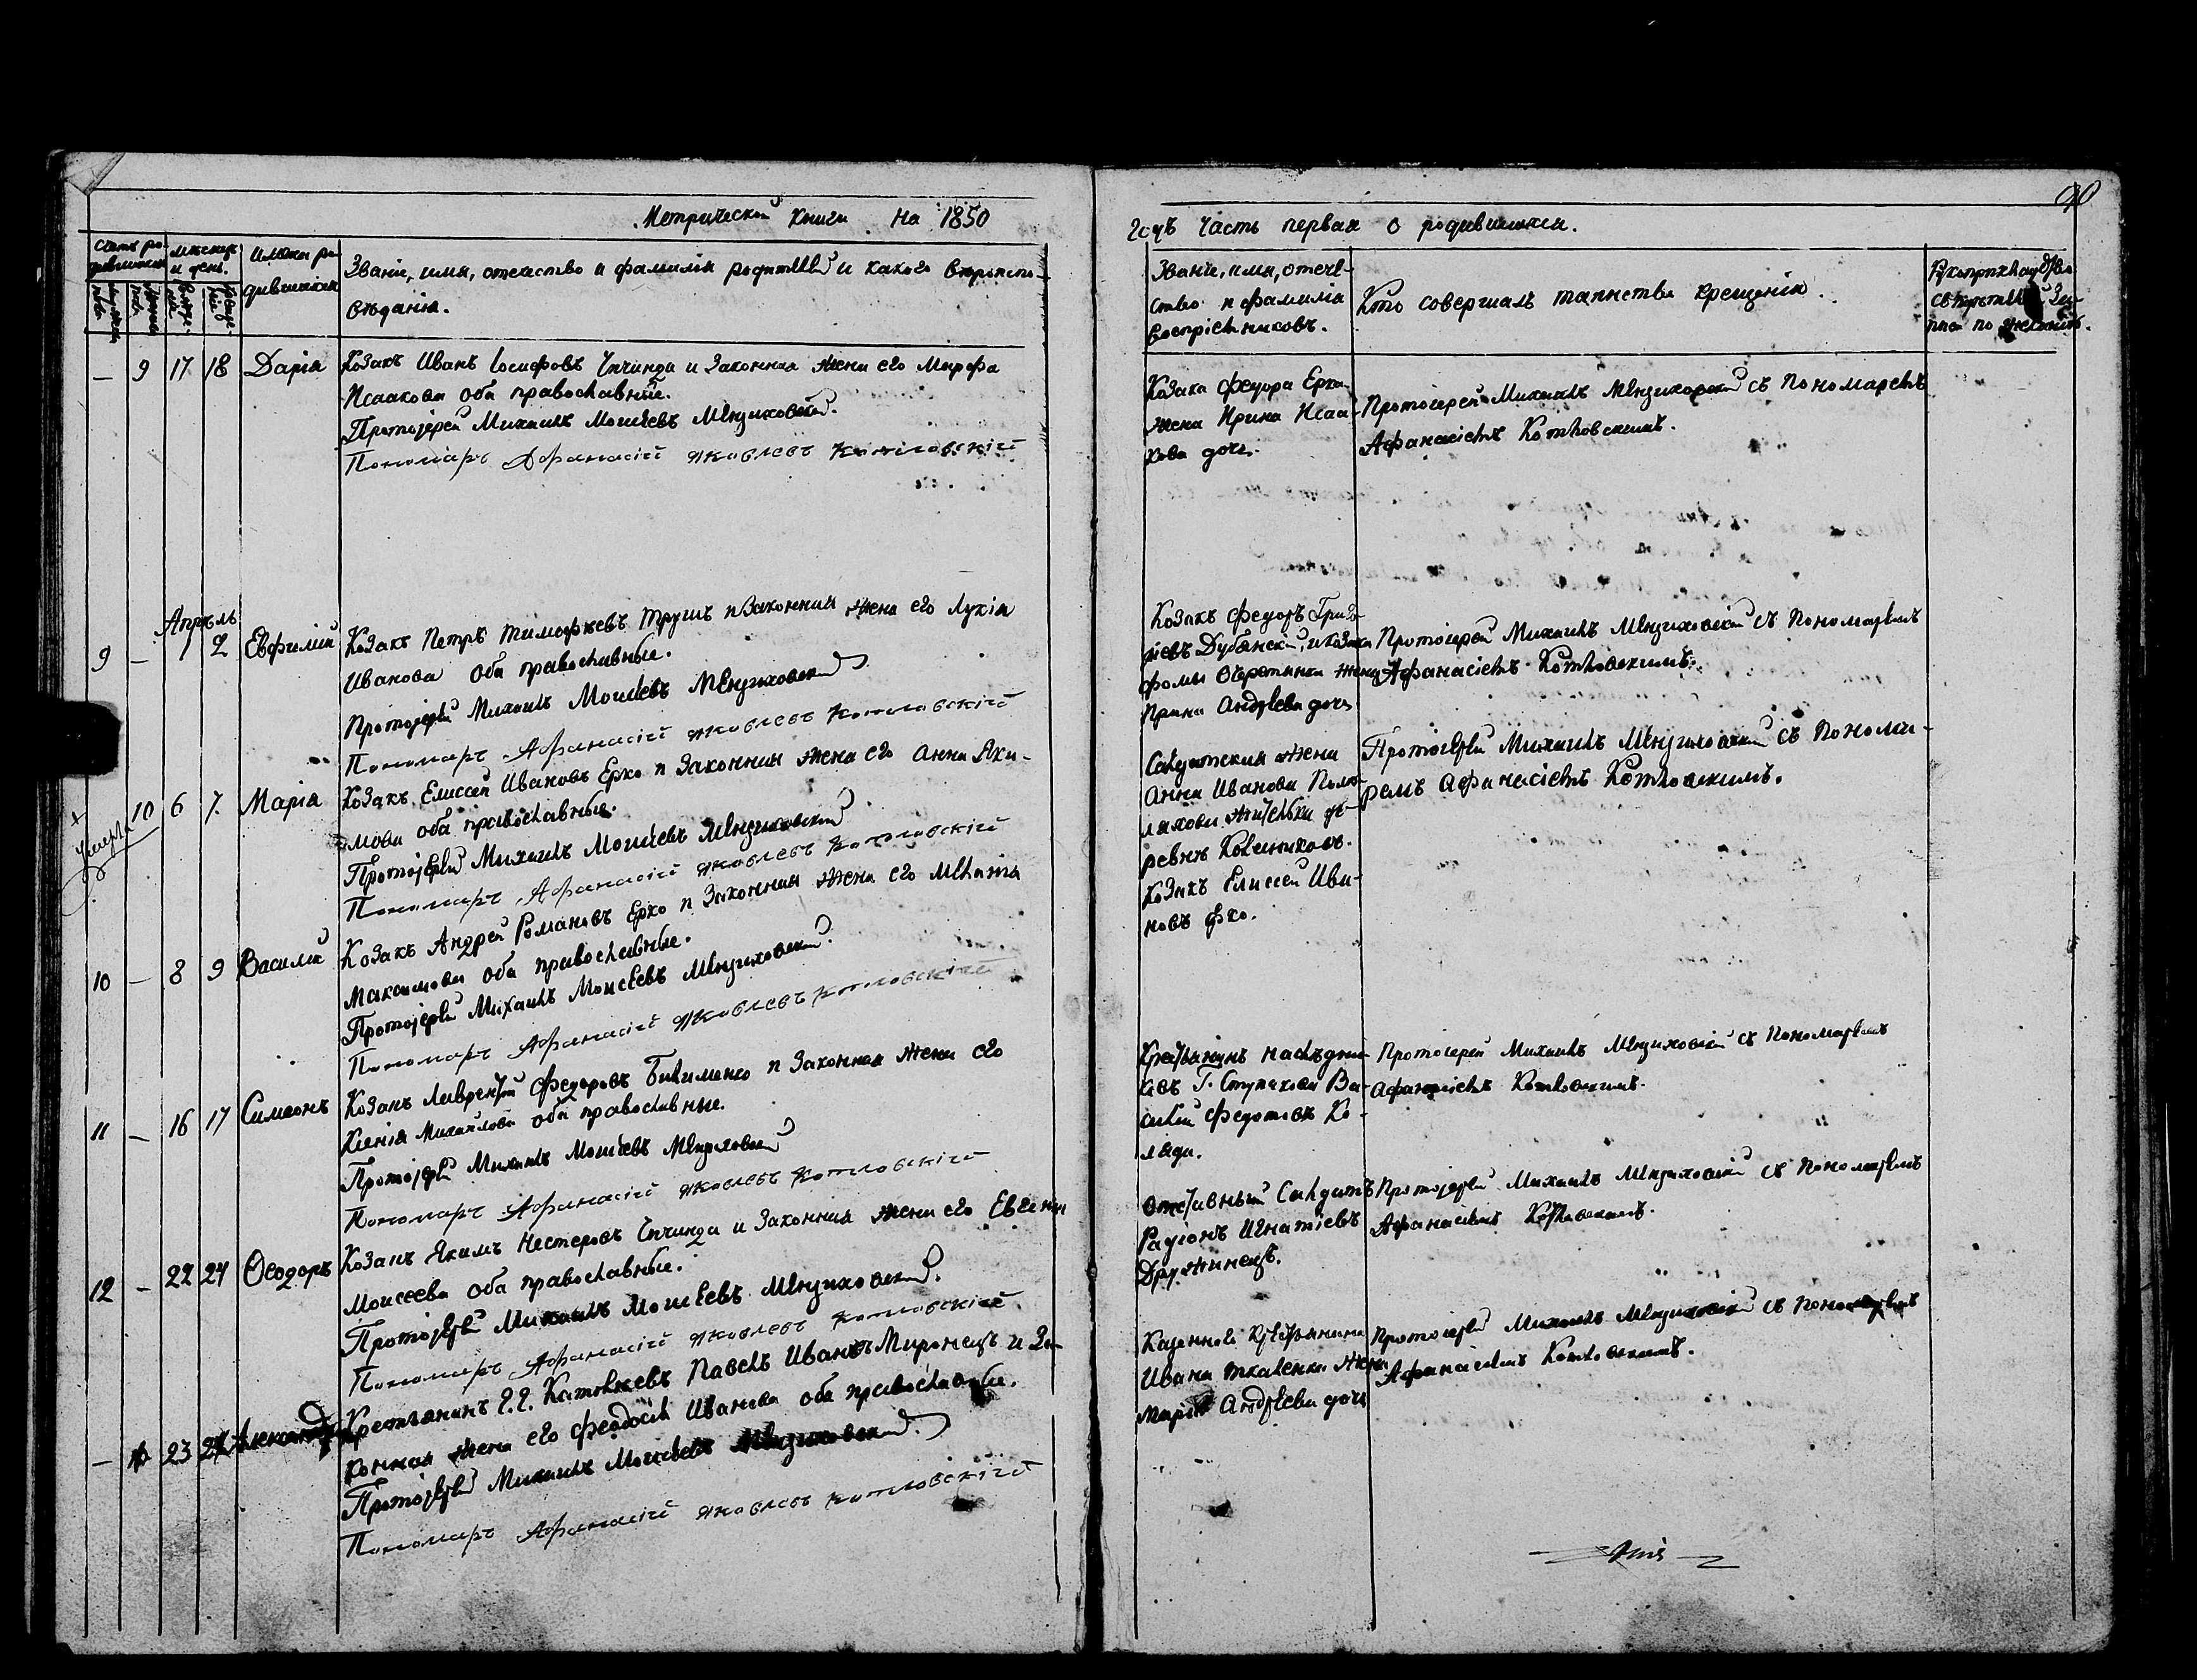 90
Метрической книги на 1850
годъ часть первая о родившихся.
Счетъ ро-
дившихся
мѣсяцъ
и день.
Имена ро-
дившихся
Званіе, имя, отечество и фамилія родителей и какого вѣроиспо-
вѣданія.
Званіе, имя, отече-
ство и фамилія
воспріемниковъ.
Кто совершалъ таинство крещенія.
по желанію.
— 9 17 18 Дарія
Козакъ Иванъ Іосифовъ и законная жена его Марфа
Исаакова оба православные.
Протоіерей Михаилъ Моисеевъ
Пономарь Афанасій Яковлевъ Котловскій
Козака Федора Ерка
жена Ирина Исаа-
кова дочь.
Протоіерей Михаилъ съ Пономаремъ
Афанасіемъ Котловскимъ.
Апрѣль
9 — 1 2 Евфимій
Козакъ Петръ Тимофѣевъ Трушъ и законная жена его Лукія
Иванова оба православные.
Протоіерей Михаилъ Моисеевъ
Пономарь Афанасій Яковлевъ Котловскій
Козакъ Федоръ Григо-
ріевъ Дубянскій, и козака
Фомы жена
Ирина Андреева дочь
Протоіерей Михаилъ съ Пономаремъ
Афанасіемъ Котловскимъ.
Умерла
10 6 7 Марія
Козакъ Елиссей Ивановъ Ерко и законная жена его Анна Яки-
мова оба православные.
Протоіерей Михаилъ Моисеевъ
Пономарь Афанасій Яковлевъ Котловскій
Салдатская жена
Анна Иванова
жителька де-
ревни
Протоіерей Михаилъ съ Понома-
ремъ Афанасіемъ Котловскимъ.
10 — 8 9 Василій
Козакъ Андрей Романовъ Ерко и законная жена его Меланія
Максимова оба православные.
Протоіерей Михаилъ Моисеевъ
Пономарь Афанасій Яковлевъ Котловскій
Козакъ Елиссей Ива-
новъ Ерко.
11 — 16 17 Симеонъ
Козакъ Лаврентій Федоровъ и законная жена его
Ксенія Михайлова оба православные.
Протоіерей Михаилъ Моисеевъ
Пономарь Афанасій Яковлевъ Котловскій
Крестьянинъ наслѣдни-
ковъ Г. Ступакова Ва-
силій Федотовъ Ко-
ляда.
Протоіерей Михаилъ съ Пономаремъ
Афанасіемъ Котловскимъ.
12 — 22 24 Ѳеодоръ
Козакъ Якимъ Нестеровъ и законная жена его Евгенія
Моисеева оба православные.
Протоіерей Михаилъ Моисеевъ
Пономарь Афанасій Яковлевъ Котловскій
Отставный Салдатъ
Радіонъ Игнатіевъ
Дружинецъ.
Протоіерей Михаилъ съ Пономаремъ
Афанасіемъ Котловскимъ.
— 23 24 Александра
Крестьянинъ Павелъ Ивановъ Миронецъ и за-
конная жена его Феодосія Иванова оба православные.
Протоіерей Михаилъ Моисеевъ
Пономарь Афанасій Яковлевъ Котловскій
Казеннаго крестьянина
Ивана Ткаченка жена
Марія Андреева дочь
Протоіерей Михаилъ съ Пономаремъ
Афанасіемъ Котловскимъ.